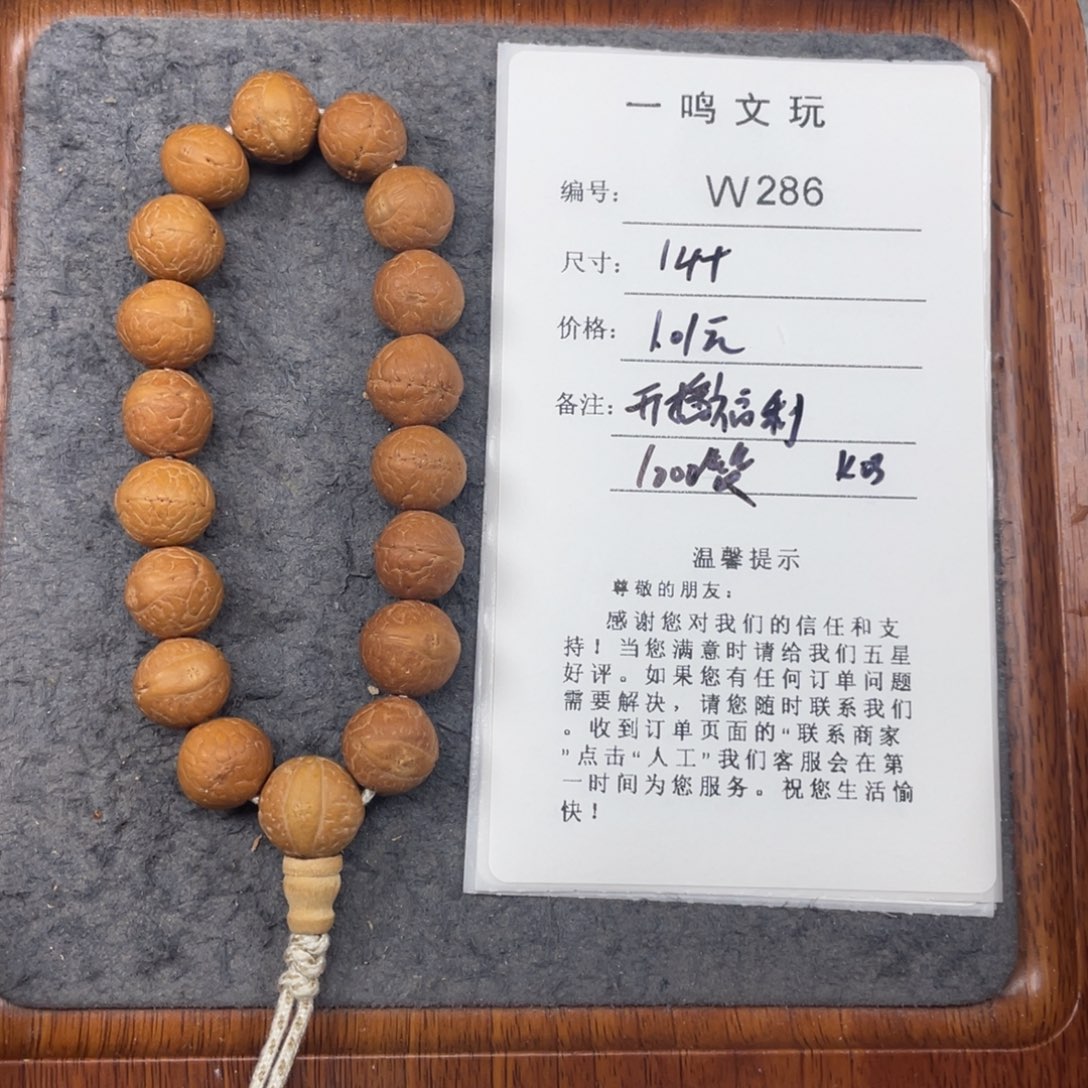 一鸣文玩
编号： W286
尺寸： 14+
价格： 101元
备注： 开播福利
温馨提示
尊敬的朋友：
感谢您对我们的信任和支
持！当您满意时请给我们五星
好评。如果您有任何订单问题
需要解决，请您随时联系我们
。收到订单页面的“联系商家
”点击“人工”我们客服会在第
一时间为您服务。祝您生活愉
快！